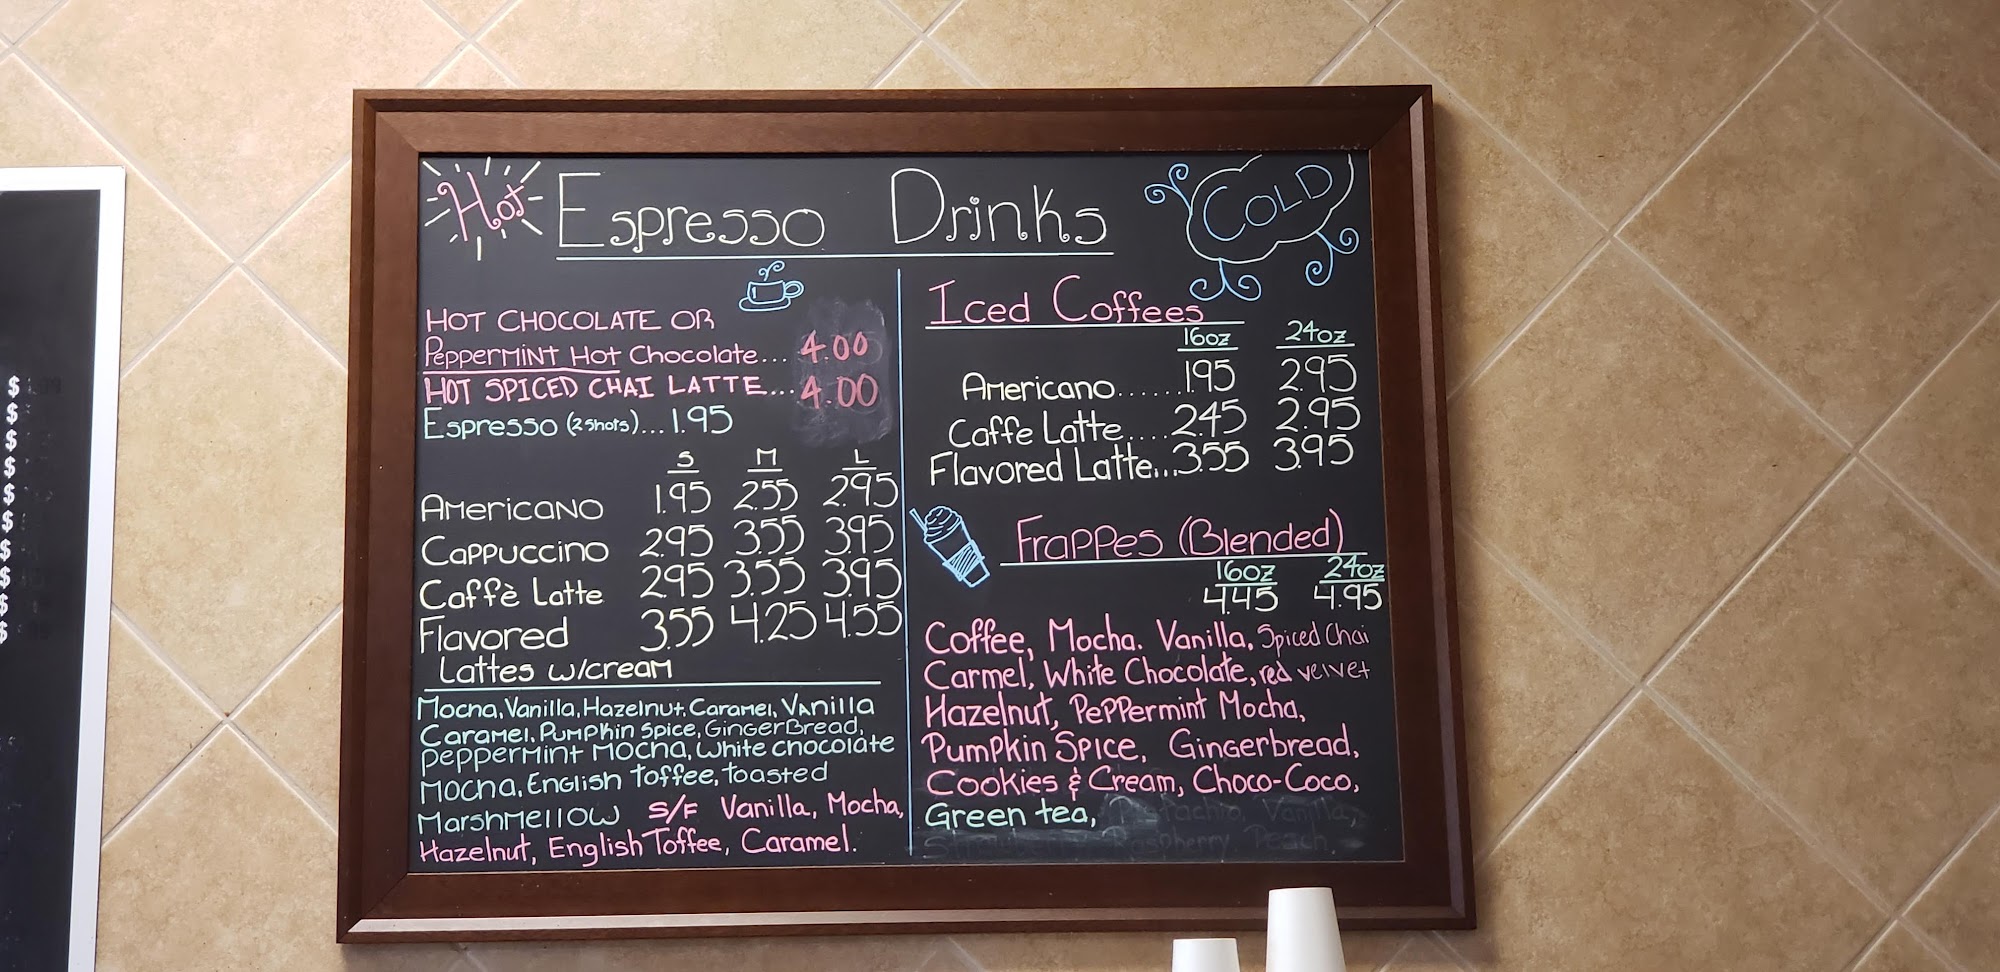 Hot Espresso Drinks COLD
HOT CHOCOLATE OR
Peppermint Hot Chocolate... 4.00
HOT SPICED CHAI LATTE... 4.00
Espresso (2 shots)... 1.95
S M L
Americano 1.95 2.55 2.95
Cappuccino 2.95 3.55 3.95
Caffè Latte 2.95 3.55 3.95
Flavored 3.55 4.25 4.55
Lattes w/cream
Mocha, Vanilla, Hazelnut, Caramel, Vanilla
Caramel, Pumpkin Spice, GingerBread,
Peppermint Mocha, White chocolate
Mocha, English toffee, toasted
Marshmellow S/F Vanilla, Mocha,
Hazelnut, English Toffee, Caramel.
Iced Coffees
16oz 24oz
Americano...... 1.95 2.95
Caffe Latte.... 2.45 2.95
Flavored Latte... 3.55 3.95
Frappes (Blended)
16oz 24oz
4.45 4.95
Coffee, Mocha. Vanilla, Spiced Chai
Carmel, White Chocolate, red velvet
Hazelnut, Peppermint Mocha,
Pumpkin Spice, Gingerbread,
Cookies & Cream, Choco-Coco,
Green tea, Vanilla,
Raspberry, Peach,
$
$
$
$
$
$
$
$
$
$